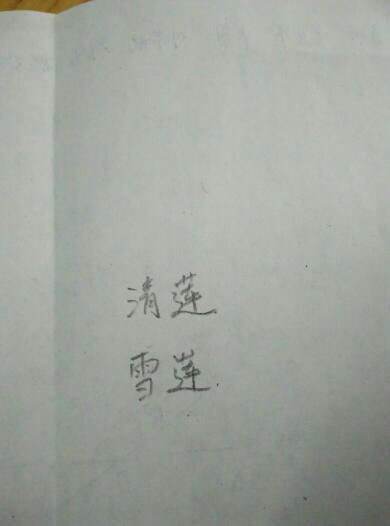 清莲
雪莲